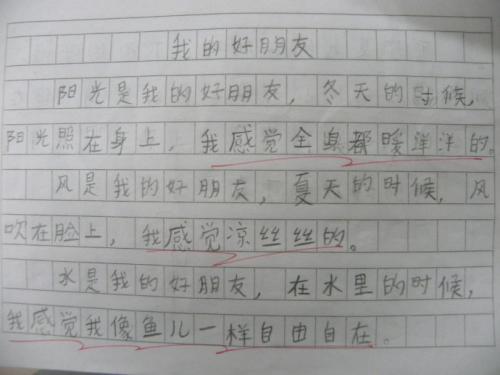 我的好朋友
阳光是我的好朋友，冬天的时候，
阳光照在身上，我感觉全身都暖洋洋的。
风是我的好朋友，夏天的时候，风
吹在脸上，我感觉凉丝丝丝的。
水是我的好朋友，在水里的时候，
我感觉我像鱼儿一样自由自在。